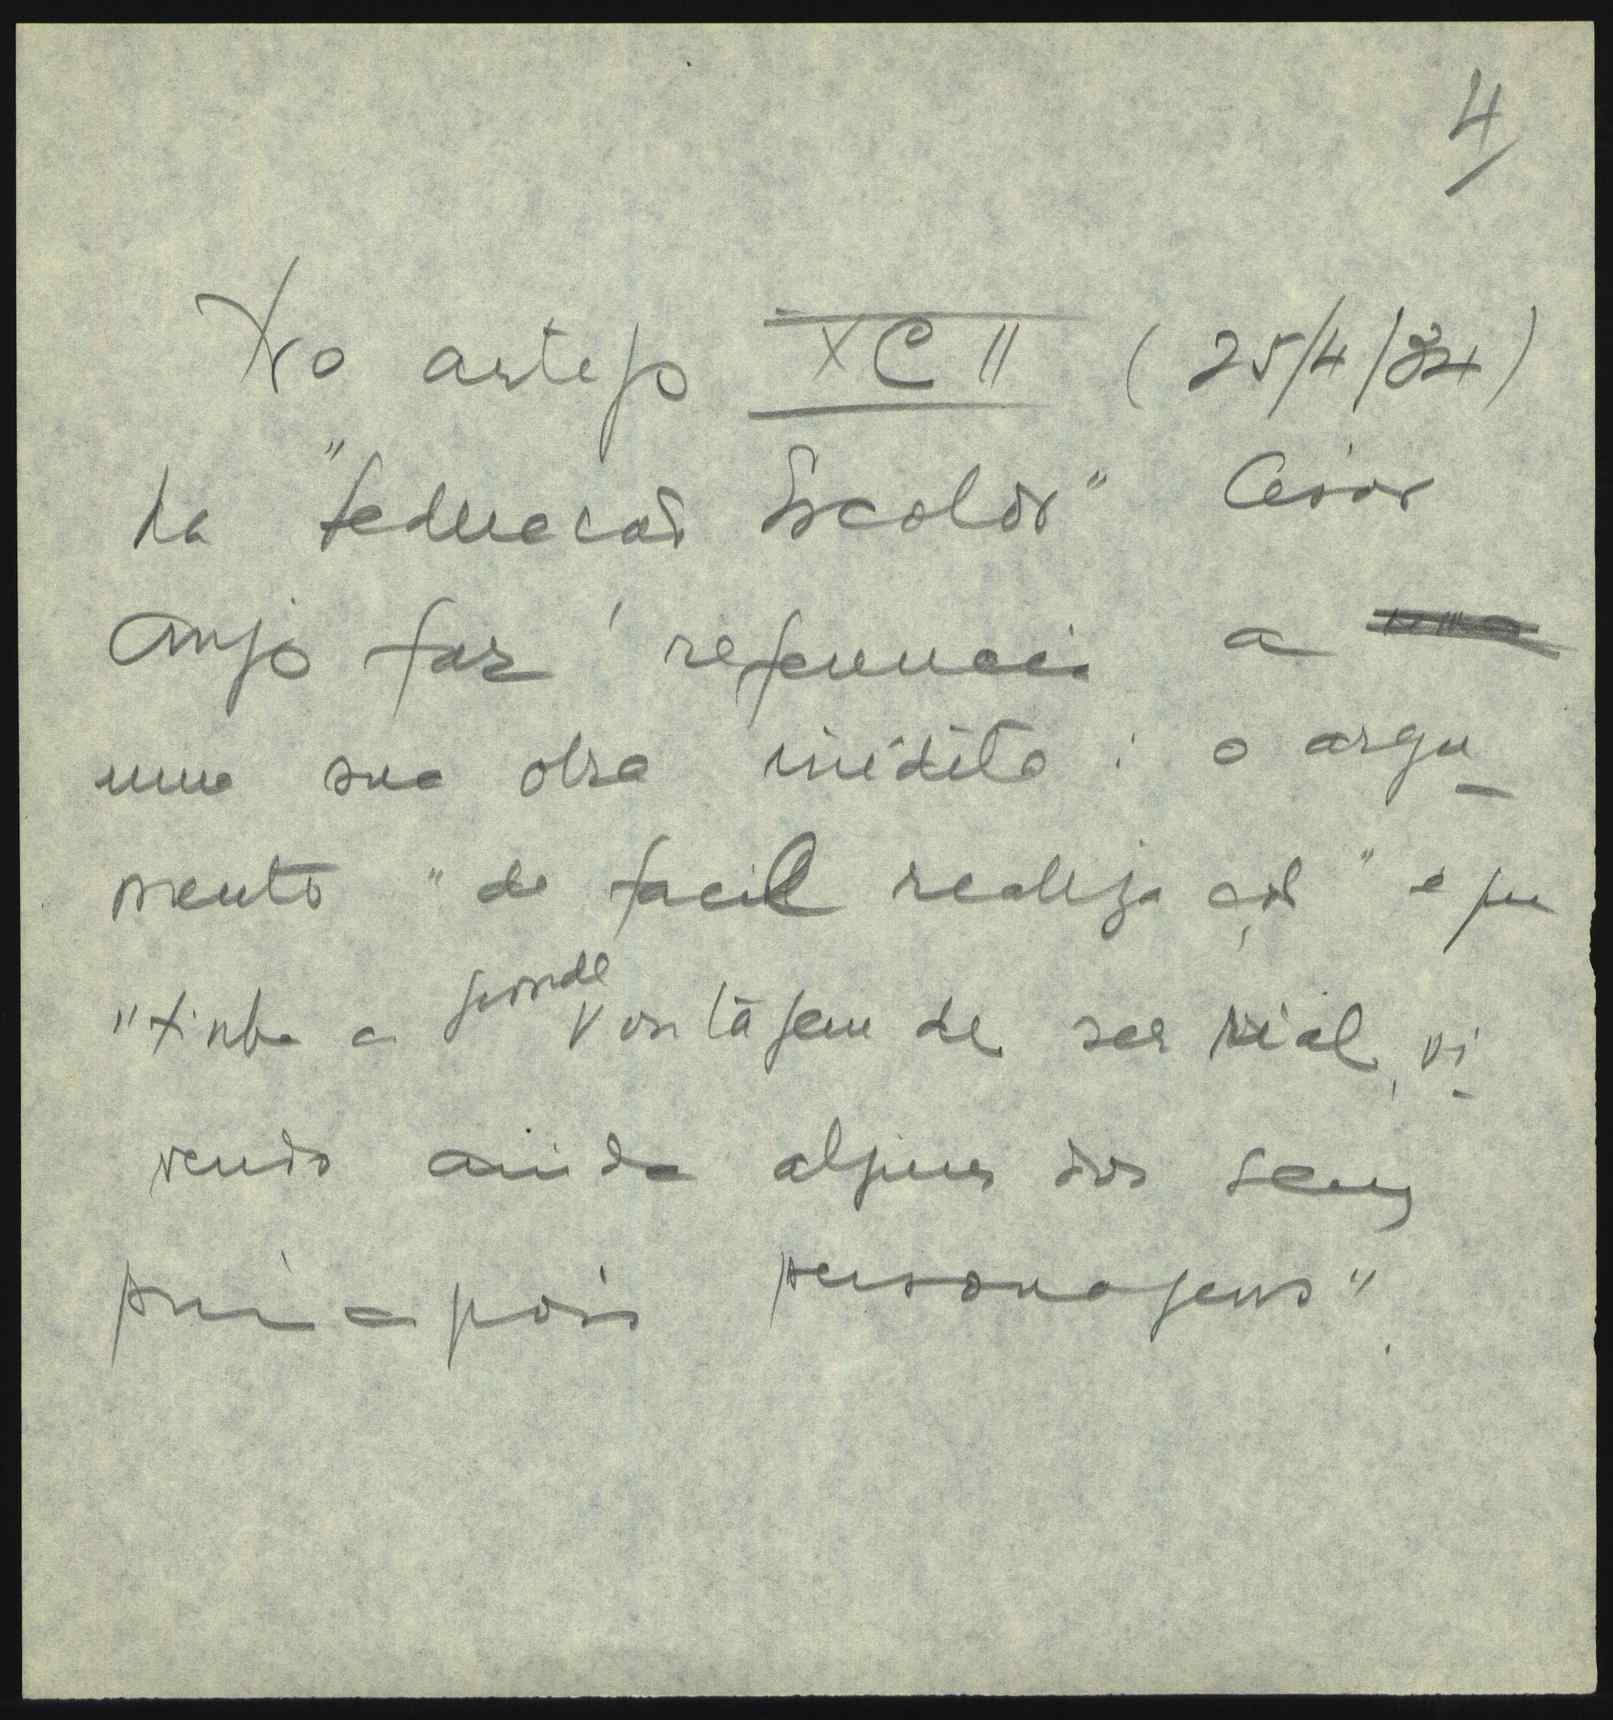 4/
No artigo XCII (25/4/34)
da "Educação Escolar" César
Anjo faz referencia a uma
uma sua obra inédita: o argu-
mento "de facil realização" e que
"tinha a grande vantágem de ser rial, vi-
vendo ainda alguns dos seus
principais personagens".